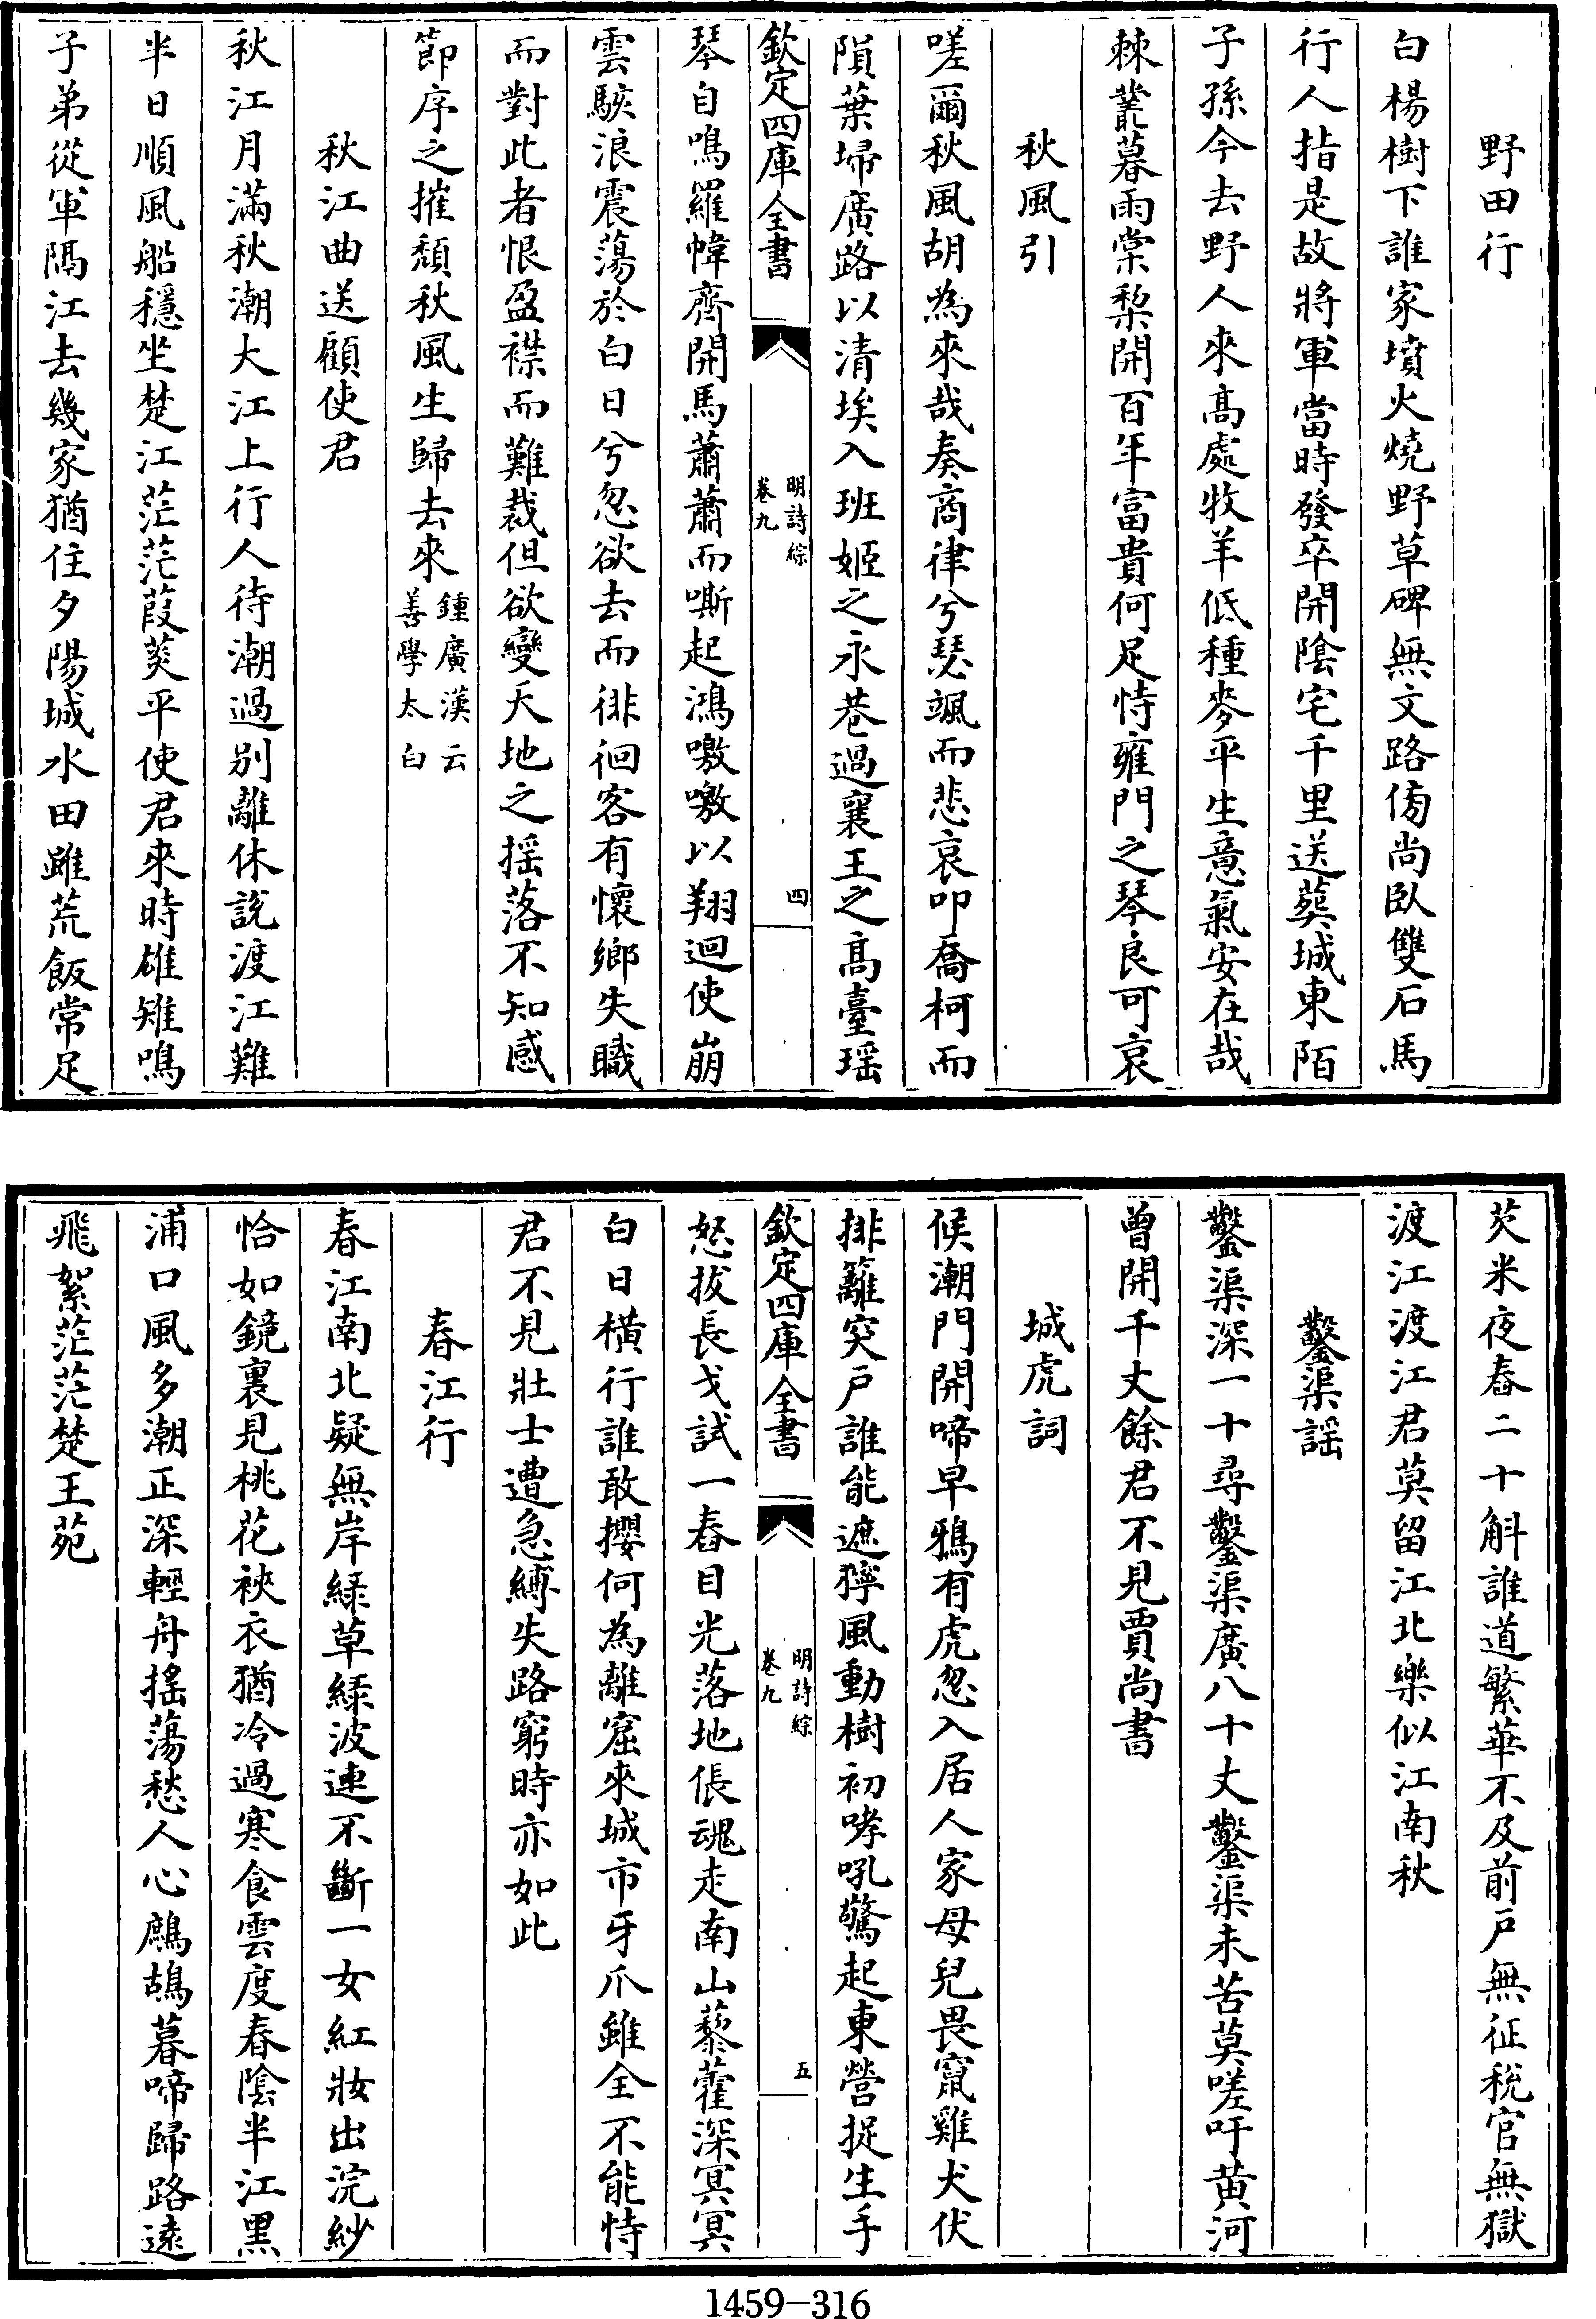 野田行
白楊樹下誰家墳火燒野草碑無文路傍尚臥雙石馬
行人指是故將軍當時發卒開陰宅千里送葬城東陌
子孫今去野人來髙處牧羊低種麥平生意氣安在哉
棘叢暮雨棠棃開百年富貴何足恃雍門之琴良可哀
秋風引
嗟爾秋風胡為來哉奏商律兮瑟颯而悲哀叩喬柯而
隕葉埽廣路以清埃入班姬之永巷過襄王之髙臺瑶
欽定四庫全書
明詩綜
卷九
四
琴自鳴羅幃齊開馬蕭蕭而嘶起鴻噭噭以翔迴使崩
雲駭浪震蕩於白日兮忽欲去而徘徊客有懷鄉失職
而對此者恨盈襟而難裁但欲變天地之揺落不知感
節序之摧頽秋風生歸去來鍾廣漢云
善學太白
秋江曲送顧使君
秋江月滿秋潮大江上行人待潮過別離休説渡江難
半日順風船穩坐楚江茫茫葭菼平使君來時雄雉鳴
子弟從軍隔江去幾家猶住夕陽城水田雖荒飯常足
芡米夜舂二十斛誰道繁華不及前戸無征税官無獄
渡江渡江君莫留江北樂似江南秋
鑿渠謡
鑿渠深一十尋鑿渠廣八十丈鑿渠未苦莫嗟吁黄河
曾開千丈餘君不見賈尚書
城虎詞
候潮門開啼早鴉有虎忽入居人家母兒畏竄雞犬伏
排籬突戸誰能遮獰風動樹初哮吼驚起東營捉生手
欽定四庫全書
明詩綜
卷九
五
怒拔長戈試一舂目光落地倀魂走南山藜藿深冥冥
白日横行誰敢攖何為離窟來城市牙爪雖全不能恃
君不見壯士遭急縛失路窮時亦如此
春江行
春江南北疑無岸緑草緑波連不斷一女紅妝出浣紗
恰如鏡裏見桃花裌衣猶冷過寒食雲度春陰半江黑
浦口風多潮正深輕舟搖蕩愁人心鷓鴣暮啼歸路遠
飛絮茫茫楚王苑
1459-316